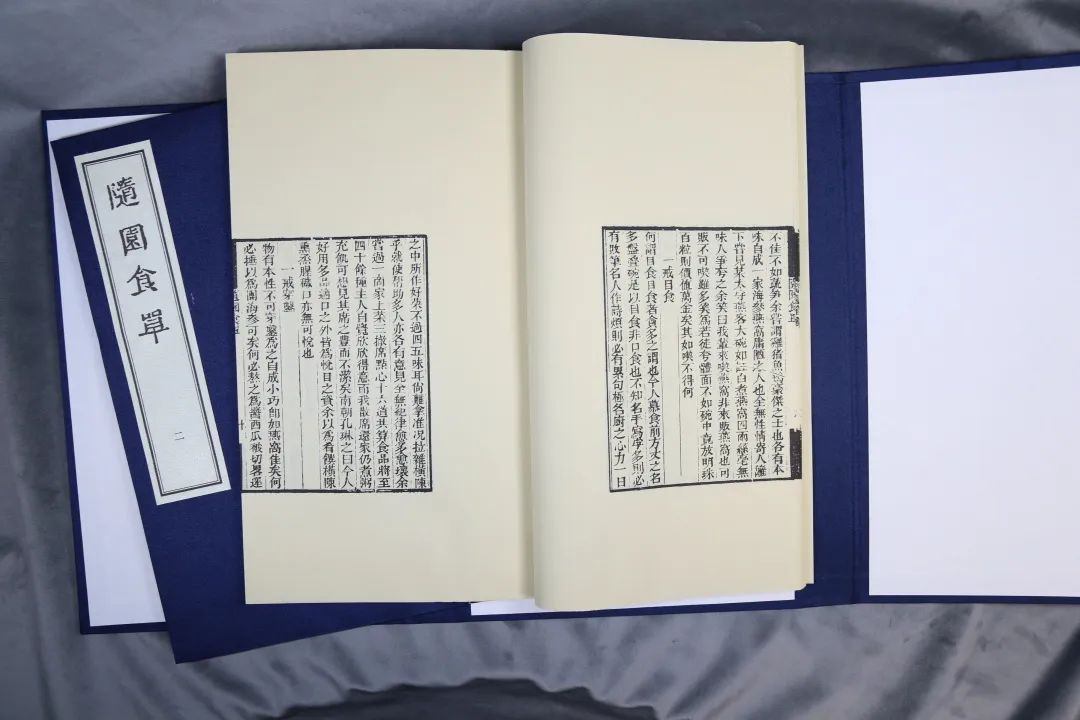 隨園食單
二
不佳不如蔬笋余嘗謂雞豬魚鴨豪傑之士也各有本
味自成一家海參燕窩庸陋之人也全無性情寄人籬
下嘗見某太守燕客大碗如缸白煮燕窩四兩絲毫無
味人爭夸之余笑曰我輩來喫燕窩非來販燕窩也可
販不可喫雖多奚爲若徒夸體面不如碗中竟放明珠
百粒則價値萬金矣其如喫不得何
一戒目食
何謂目食目食者貪多之謂也今人慕食前方丈之名
多盤疊碗是以目食非口食也不知名手寫字多則必
有敗筆名人作詩煩則必有累句極名廚之心力一日
之中所作好菜不過四五味耳尚難拿准况拉雜橫陳
乎就使帮助多人亦各有意見全無紀律愈多愈壞余
嘗過一商家上菜三撤席點心十六道共算食品將至
四十餘種主人自覺欣欣得意而我散席還家仍煮粥
充飢可想見其席之豐而不潔矣南朝孔琳之曰今人
好用多品適口之外皆爲悅目之資余以爲肴饌橫陳
熏蒸腥穢口亦無可悅也
一戒穿鑿
物有本性不可穿鑿爲之自成小巧卽如燕窩佳矣何
必捶以爲團海參可矣何必熬之爲醬西瓜被切畧遲